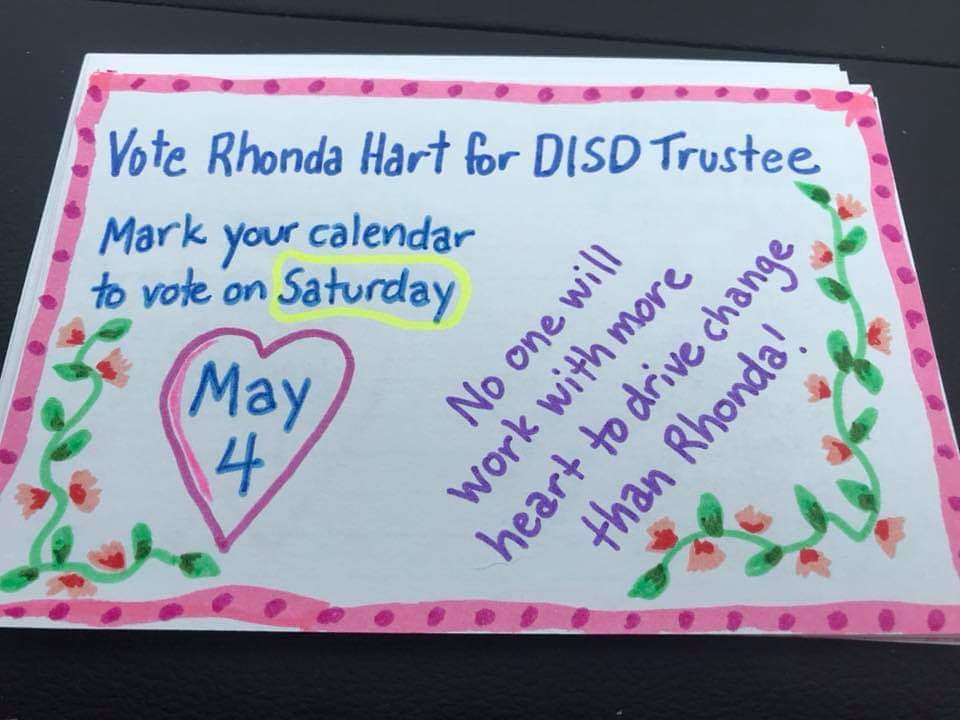 Vote Rhonda Hart for DISD Trustee
Mark your calendar
to vote on Saturday
May
4
No one will
work with more
heart to drive change
than Rhonda!